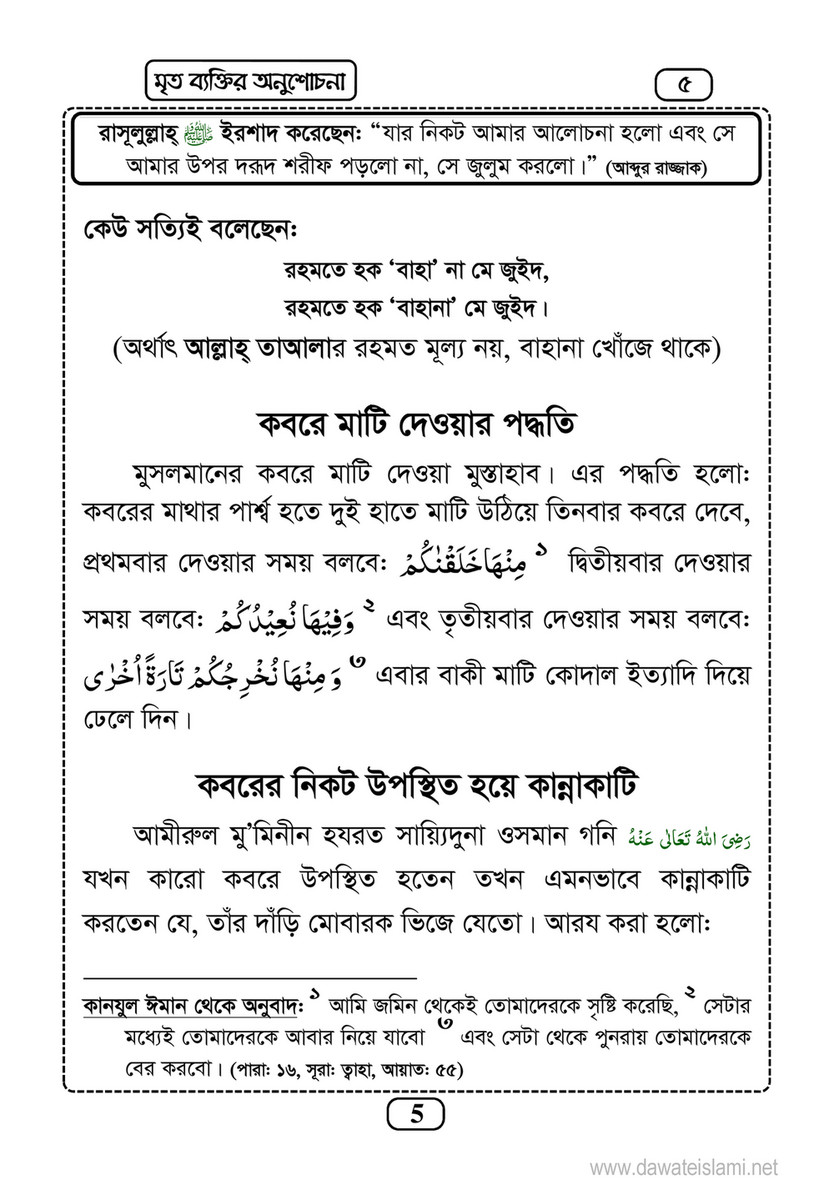 মৃত ব্যক্তির অনুশোচনা
৫
রাসূলুল্লাহ্ ﷺ ইরশাদ করেছেন: “যার নিকট আমার আলোচনা হলো এবং সে
আমার উপর দরূদ শরীফ পড়লো না, সে জুলুম করলো।” (আব্দুর রাজ্জাক)
কেউ সত্যিই বলেছেন:
রহমতে হক ‘বাহা’ না মে জুইদ,
রহমতে হক ‘বাহানা’ মে জুইদ।
(অর্থাৎ আল্লাহ্ তাআলার রহমত মূল্য নয়, বাহানা খোঁজে থাকে)
কবরে মাটি দেওয়ার পদ্ধতি
মুসলমানের কবরে মাটি দেওয়া মুস্তাহাব। এর পদ্ধতি হলো:
কবরের মাথার পার্শ্ব হতে দুই হাতে মাটি উঠিয়ে তিনবার কবরে দেবে,
প্রথমবার দেওয়ার সময় বলবে: مِنْهَا خَلَقْنٰكُمْ ১ দ্বিতীয়বার দেওয়ার
সময় বলবে: وَفِيْهَا نُعِيْدُكُمْ ২ এবং তৃতীয়বার দেওয়ার সময় বলবে:
وَ مِنْهَا نُخْرِجُكُمْ تَارَةً اُخْرٰى ৩ এবার বাকী মাটি কোদাল ইত্যাদি দিয়ে
ঢেলে দিন।
কবরের নিকট উপস্থিত হয়ে কান্নাকাটি
আমীরুল মু’মিনীন হযরত সায়্যিদুনা ওসমান গনি رَضِىَ اللهُ تَعَالٰى عَنْهُ
যখন কারো কবরে উপস্থিত হতেন তখন এমনভাবে কান্নাকাটি
করতেন যে, তাঁর দাঁড়ি মোবারক ভিজে যেতো। আরয করা হলো:
কানযুল ঈমান থেকে অনুবাদ: ১ আমি জমিন থেকেই তোমাদেরকে সৃষ্টি করেছি, ২ সেটার
মধ্যেই তোমাদেরকে আবার নিয়ে যাবো ৩ এবং সেটা থেকে পুনরায় তোমাদেরকে
বের করবো। (পারা: ১৬, সূরা: ত্বাহা, আয়াত: ৫৫)
5
www.dawateislami.net